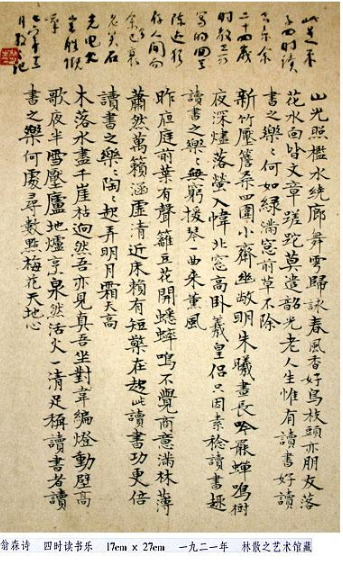 二十四歲
存人间向
老矣石
光电火
山光照檻水繞廊舞雩歸詠春風香好鳥枝頭亦朋友落
花水面皆文章蹉跎莫遣韶光老人生惟有讀書好讀
書之樂〻何如綠滿窓前草不除
新竹壓簷桑四圍小齋幽敞明朱曦晝長吟罷蟬鳴樹
夜深燼落螢入幃北窓高卧羲皇侣只因素稔讀書趣
讀書之樂〻無窮援琴一曲來薰風
昨夜庭前葉有聲籬豆花開蟋蟀鳴不覺商意滿林薄
蕭然萬籟涵虛清近床賴有短檠在趁此讀書功更倍
讀書之樂〻陶〻起弄明月霜天高
木落水盡千崖枯迥然吾亦見真吾坐對韋編燈動壁高
歌夜半雪壓廬地爐烹泉然活火一清足稱讀書者讀
書之樂何處尋數點梅花天地心
翁森诗 四时读书乐 17cm x 27cm 一九二一年 林散之艺术馆藏